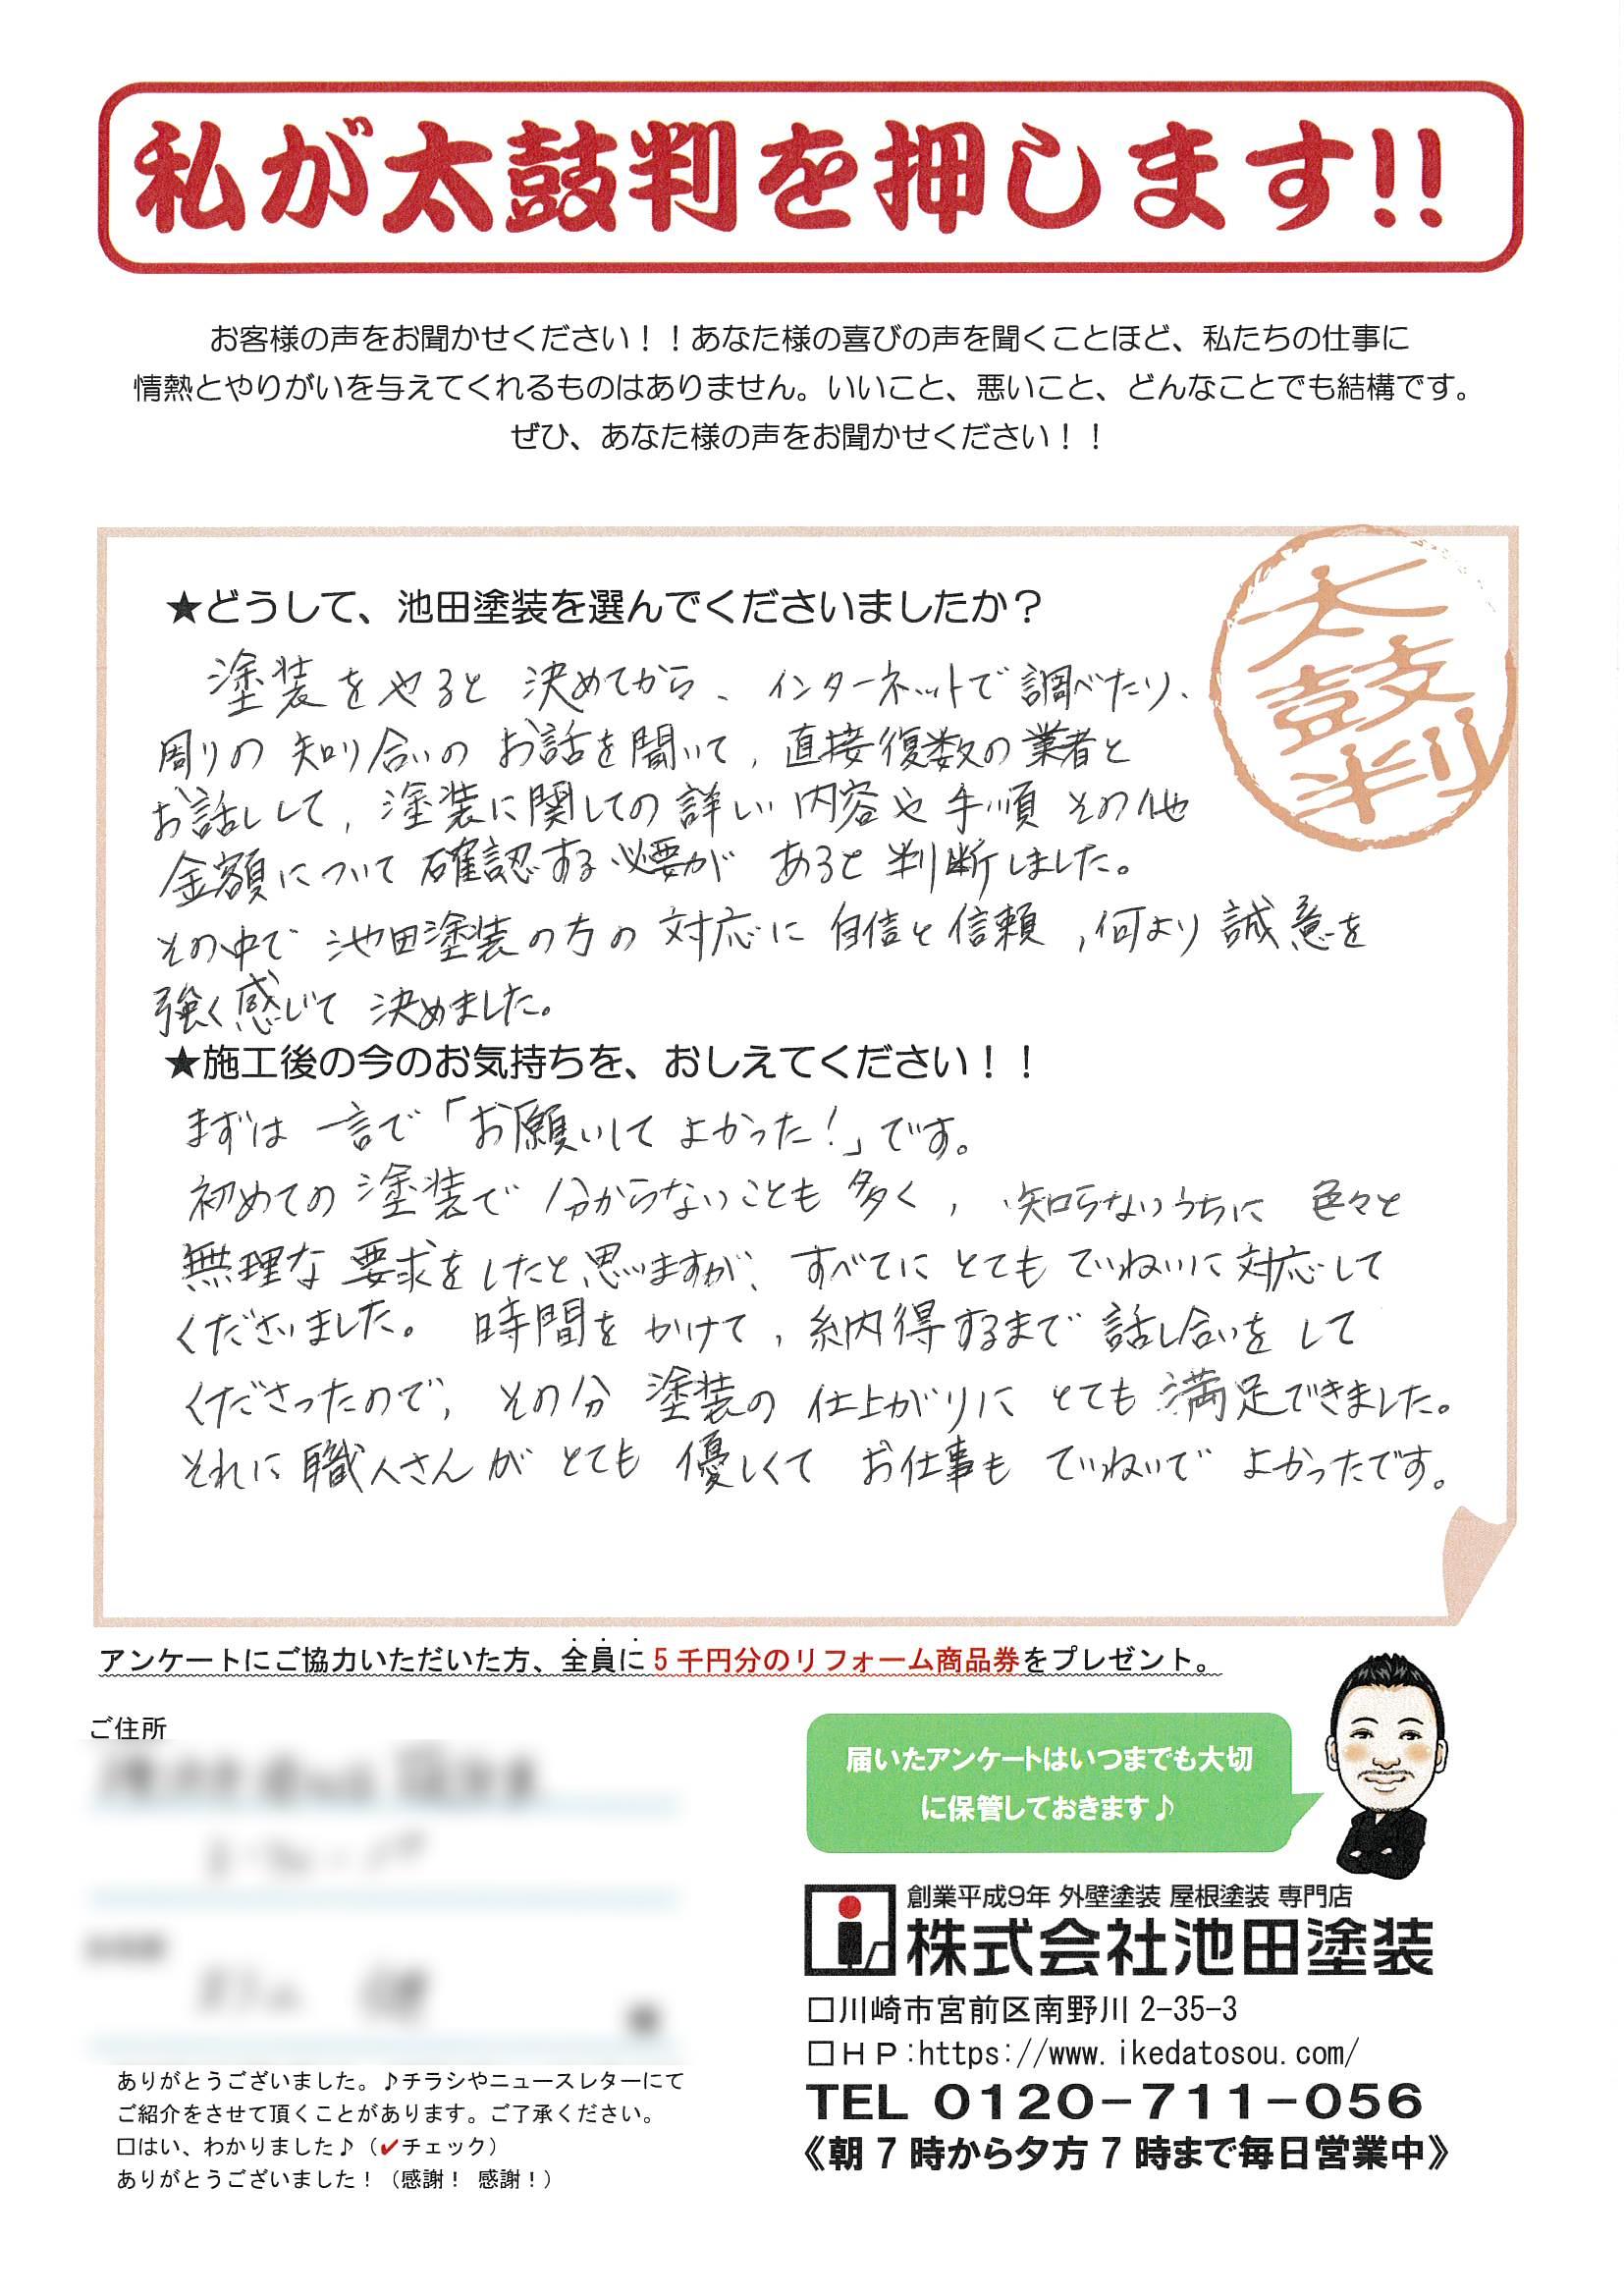 私が太鼓判を押します!!
お客様の声をお聞かせください！！あなた様の喜びの声を聞くことほど、私たちの仕事に
情熱とやりがいを与えてくれるものはありません。いいこと、悪いこと、どんなことでも結構です。
ぜひ、あなた様の声をお聞かせください！！
太鼓判
★どうして、池田塗装を選んでくださいましたか？
塗装をやると決めてから、インターネットで調べたり、
周りの知り合いのお話を聞いて、直接復数の業者と
お話しして、塗装に関しての詳しい内容や手順その他
金額について確認する必要があると判断しました。
その中で池田塗装の方の対応に自信と信頼、何より誠意を
強く感じて決めました。
★施工後の今のお気持ちを、おしえてください！！
まずは一言で「お願いしてよかった！」です。
初めての塗装で分からないことも多く、知らないうちに色々と
無理な要求をしたと思いますが、すべてにとてもていねいに対応して
くださいました。時間をかけて、納得するまで話し合いをして
くださったので、その分塗装の仕上がりにとても満足できました。
それに職人さんがとても優しくてお仕事もていねいでよかったです。
アンケートにご協力いただいた方、全員に5千円分のリフォーム商品券をプレゼント。
ご住所
届いたアンケートはいつまでも大切
に保管しておきます♪
創業平成9年 外壁塗装 屋根塗装 専門店
株式会社池田塗装
□川崎市宮前区南野川2-35-3
□ＨＰ:https://www.ikedatosou.com/
TEL 0120-711-056
《朝7時から夕方7時まで毎日営業中》
ありがとうございました。♪チラシやニュースレターにて
ご紹介をさせて頂くことがあります。ご了承ください。
□はい、わかりました♪（✔チェック）
ありがとうございました！（感謝！ 感謝！）